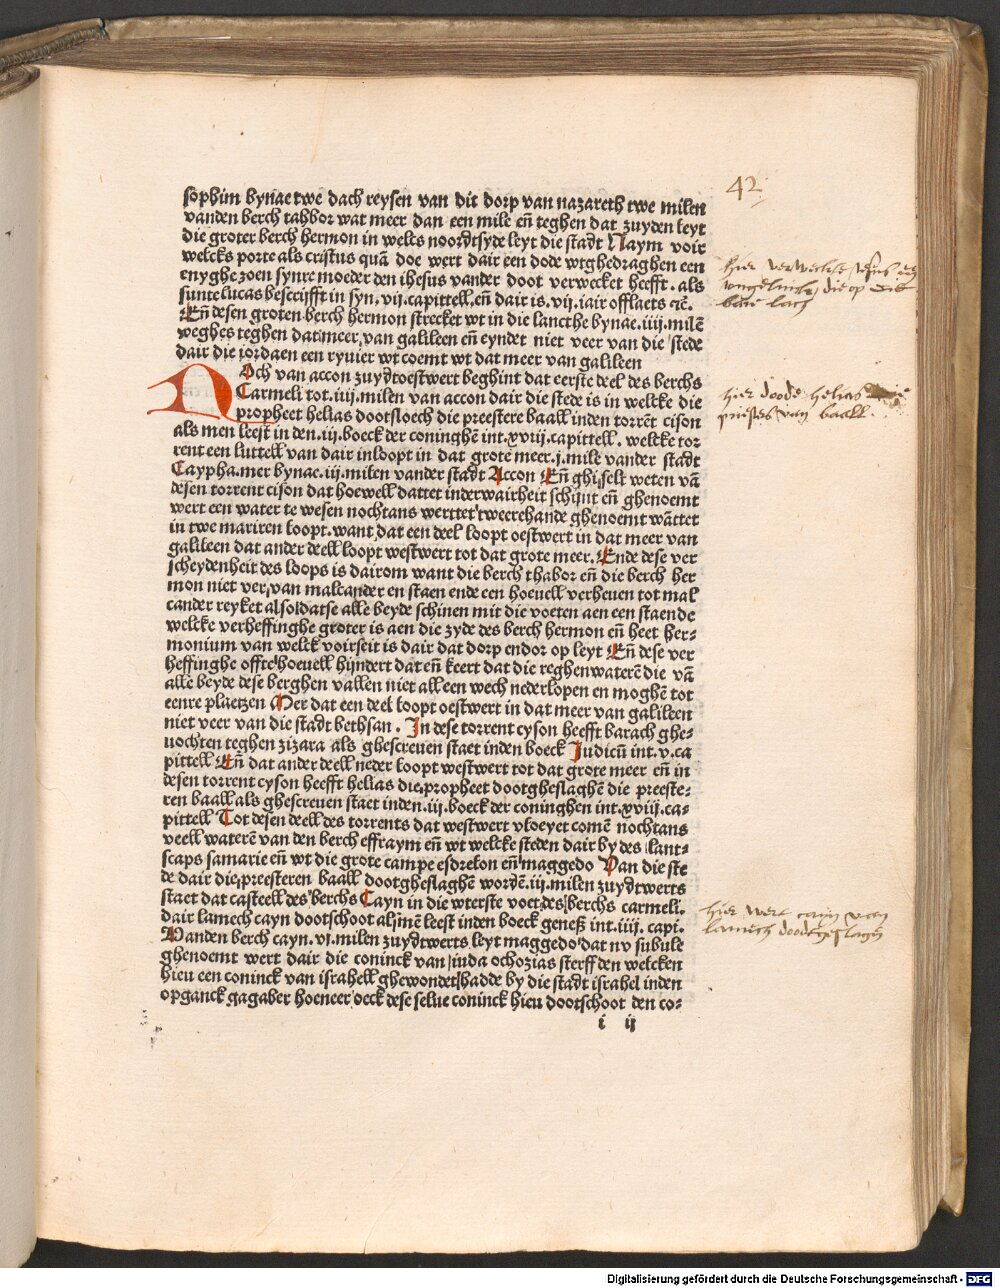 42
sophim bynae twe dach reysen van dit dorp van nazareth twe milen
vanden berch tahbor wat meer dan een mile eñ teghen dat zuyden leyt
die groter berch hermon in welts noordtsyde leyt die stadt Naym voir
welcks porte als cristus quā doe wert dair een dode wtghedraghen een
enyghe zoen synre moeder den ihesus vander doot verwecket heefft. als
sunte lucas bescrijfft in syn. vij. capittell. eñ dair is. vij. iair offlaets ꝛc̄.
Eñ desen groten berch hermon strecket wt in die lancthe bynae. iiij. milē
weghes teghen dat meer van galileen eñ eyndet niet veer van die stede
dair die iordaen een ryuier wt coemt wt dat meer van galileen
NOch van accon zuydtoestwert beghint dat eerste deel des berchs
Carmeli tot. iiij. milen van accon dair die stede is in welcke die
propheet helias dootsloech die preestere baall inden torrēt cison
als men leest in den. iij. boeck der coninghē int. xviij. capittell. welcke tor
rent een luttell van dair inloopt in dat grote meer. j. mile vander stadt
Caypha. mer bynae. iij. milen vander stadt Accon Eñ ghi selt weten vā
desen torrent cison dat hoewell dattet inderwairheit schijnt eñ ghenoemt
wert een water te wesen nochtans werttet tweerehande ghenoemt wāttet
in twe mariren loopt. want dat een deel loopt oestwert in dat meer van
galileen dat ander deell loopt westwert tot dat grote meer. Ende dese ver
scheydenheit des loops is dairom want die berch thabor eñ die berch her
mon niet ver van malcander en staen ende een hoeuell verheuen tot mal
cander reyket alsoldatse alle beyde schinen mit die voeten aen een staende
welcke verheffinghe groter is aen die zyde des berch hermon eñ heet her-
monium van welck voirseit is dair dat dorp endor op leyt Eñ dese ver
heffinghe offte hoeuell hijndert dat eñ keert dat die reghenwaterē die vā
alle beyde dese berghen vallen niet all een wech nederlopen en moghē tot
eenre plaetzen Mer dat een deel loopt oestwert in dat meer van galileen
niet veer van die stadt bethsan. In dese torrent cyson heefft barach ghe-
uochten teghen zizara als ghescreuen staet inden boeck Judicū int. v. ca
pittell Eñ dat ander deell neder loopt westwert tot dat grote meer eñ in
desen torrent cyson heefft helias die propheet dootgheslaghē die preeste-
ren baall als ghescreuen staet inden. iij. boeck der coninghen int. xviij. ca-
pittell Tot desen deell des torrents dat westwert vloeyet comē nochtans
veell waterē van den berch effraym eñ wt welcke steden dair by des lant-
scaps samarie eñ wt die grote campe esdrelon eñ maggedo Van die ste
de dair die preesteren baall dootgheslaghē wordē. iij. milen zuydtwerts
staet dat casteell des berchs Cayn in die wterste voet des berchs carmeli.
dair lamech cayn dootschoot alsmē leest inden boeck geneß int. iiij. capi.
Vanden berch cayn. vi. milen zuydtwerts leyt maggedo dat nv subule
ghenoemt wert dair die coninck van iuda ochozias sterff den welcken
hieu een coninck van israhell ghewondet hadde by die stadt israhel inden
opganck gagaber hoeneer oeck dese selue coninck hieu dootschoot den co-
i ij
hier verweckte Jesus een
iongelinck, die op die
bare lach
hier doode helias die
priesters van baall.
hier wert cayn van
lamech doodtgeslagen
Digitalisierung gefördert durch die Deutsche Forschungsgemeinschaft - DFG